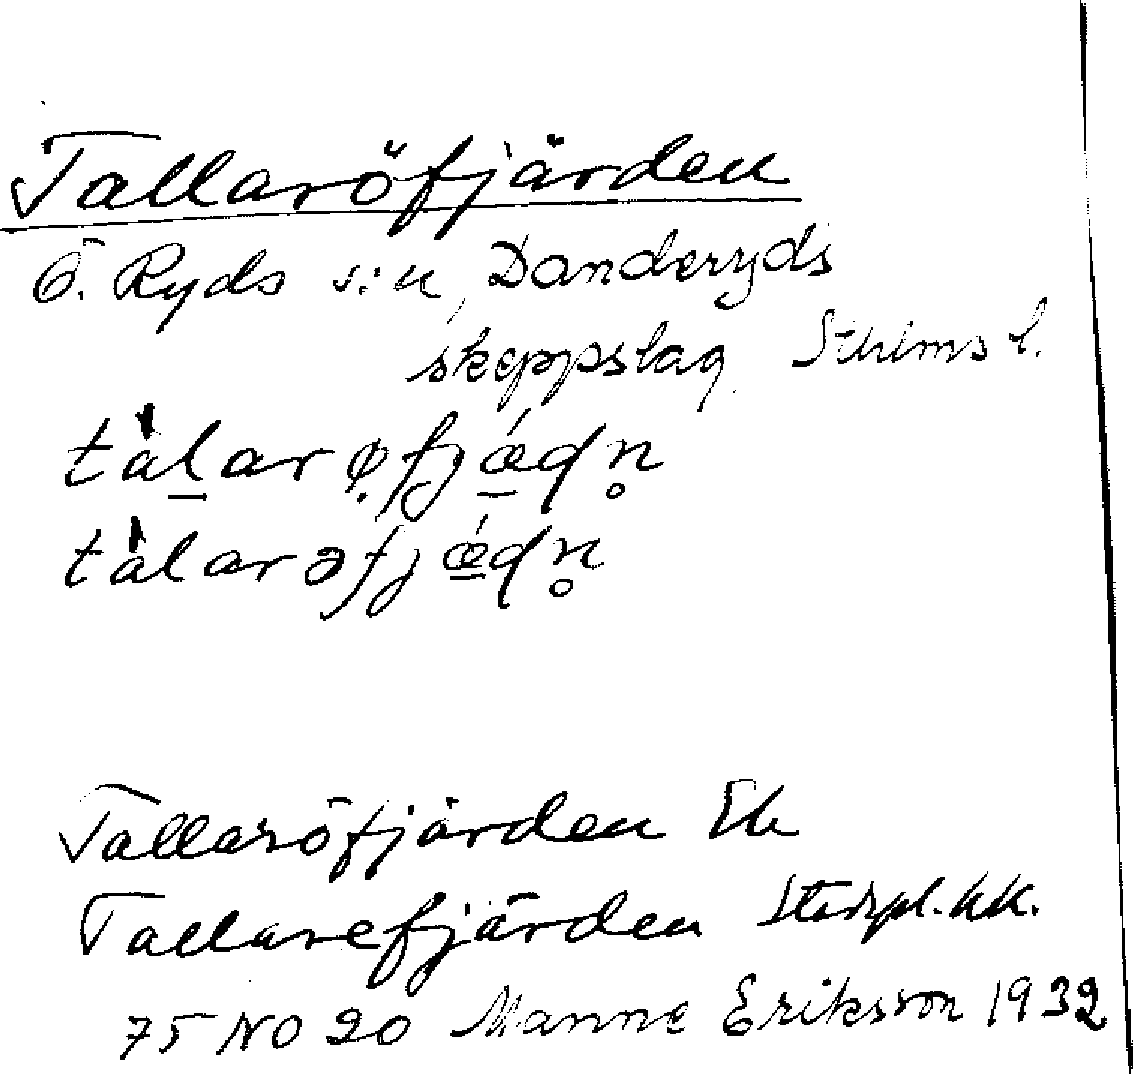 Tallaröfjärden
Ö. Ryds s:n, Danderyds
skeppslag Sthlms l.
tàlarøfjǽḍn̥
tàlarəfjǽḍn̥
Tallaröfjärden Ek
Tallarefjärden kk.
75 NO 20 Manne Eriksson 1932